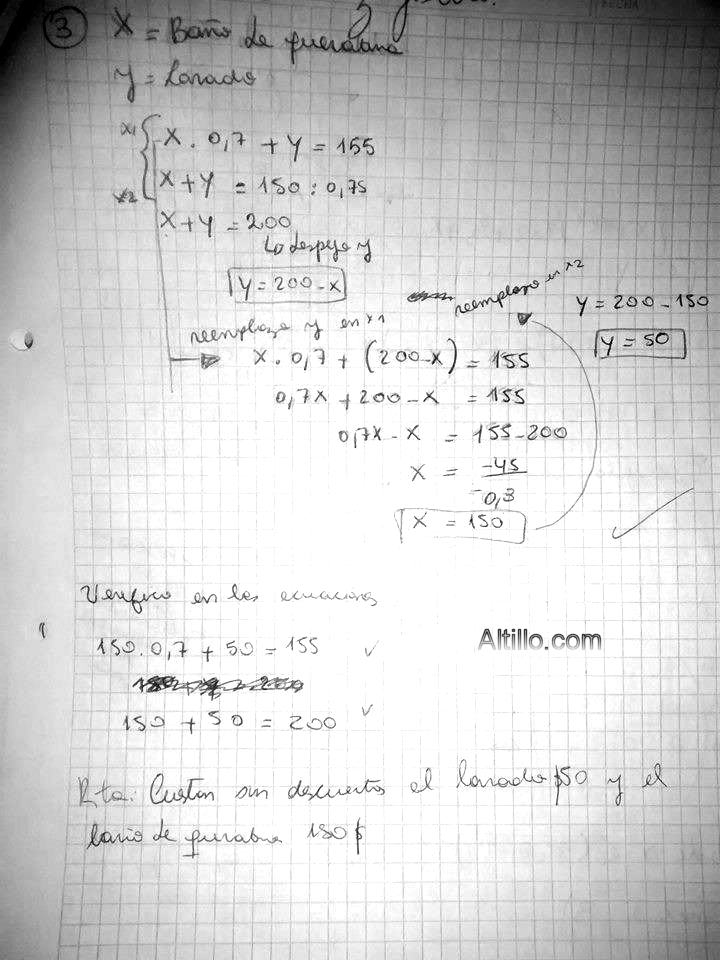 3 X = Baño de queratina
y = Lavado
x1 X . 0,7 + y = 155
x2 X + y = 150 : 0,75
X + y = 200
Lo despejo y
y = 200 - x
reemplazo en x2
y = 200 - 150
y = 50
reemplazo y en x1
X . 0,7 + (200 - X) = 155
0,7X + 200 - X = 155
0,7X - X = 155 - 200
X = -45
-0,3
X = 150
Verifico en las ecuaciones
150 . 0,7 + 50 = 155 ✓
Altillo.com
150 + 50 = 200 ✓
Rta: Cuestan sin descuentos el lavado $50 y el
baño de queratina 150 $